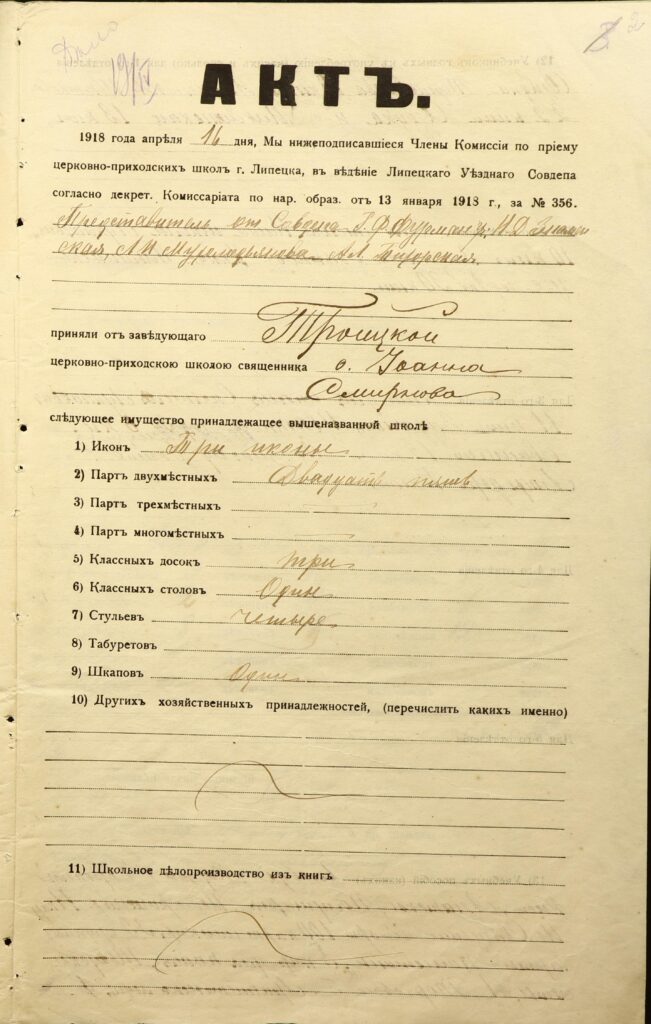 Дѣло
19/IV
2
АКТЪ.
1918 года апрѣля 16 дня, Мы нижеподписавшіеся Члены Комиссіи по пріему
церковно-приходскихъ школъ г. Липецка, въ вѣдѣніе Липецкаго Уѣзднаго Совдепа
согласно декрет. Комиссаріата по нар. образ. отъ 13 января 1918 г., за № 356.
Представитель от Совдепа
приняли отъ завѣдующаго Троицкой
церковно-приходскою школою священника о. Іоанна
Смирнова
слѣдующее имущество принадлежащее вышеназванной школѣ
1) Иконъ Три иконы
2) Партъ двухмѣстныхъ Двадцать пять
3) Партъ трехмѣстныхъ
4) Партъ многомѣстныхъ
5) Классныхъ досокъ три
6) Классныхъ столовъ Один
7) Стульевъ четыре
8) Табуретовъ
9) Шкаповъ Один
10) Другихъ хозяйственныхъ принадлежностей, (перечислить какихъ именно)
11) Школьное дѣлопроизводство изъ книгъ